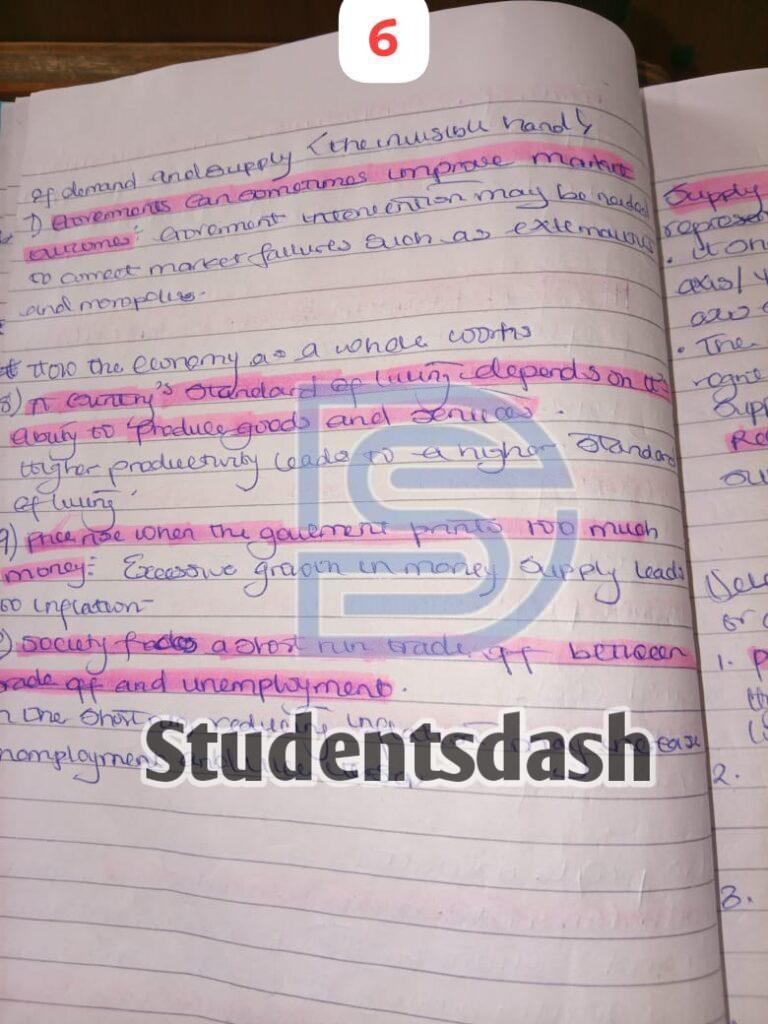 6
of demand and supply (the invisible hand)
7) Goverements can sometimes improve market
outcomes: Goverment intervention may be needed
to correct market failures such as externalities
and monopolies.
How the economy as a whole works
8) A country's standard of living depends on it's
ability to produce goods and services.
Higher productivity leads to a higher standard
of living
9) Price rise when the goverment prints too much
money: Excessive growth in money supply leads
to inflation
Society faces a short run trade off between
trade off and unemployment.
In the short run reducing may increase
unemployment and
Studentsdash
Supply
represen
It
axis/
are
The
Supp
1.
2.
3.